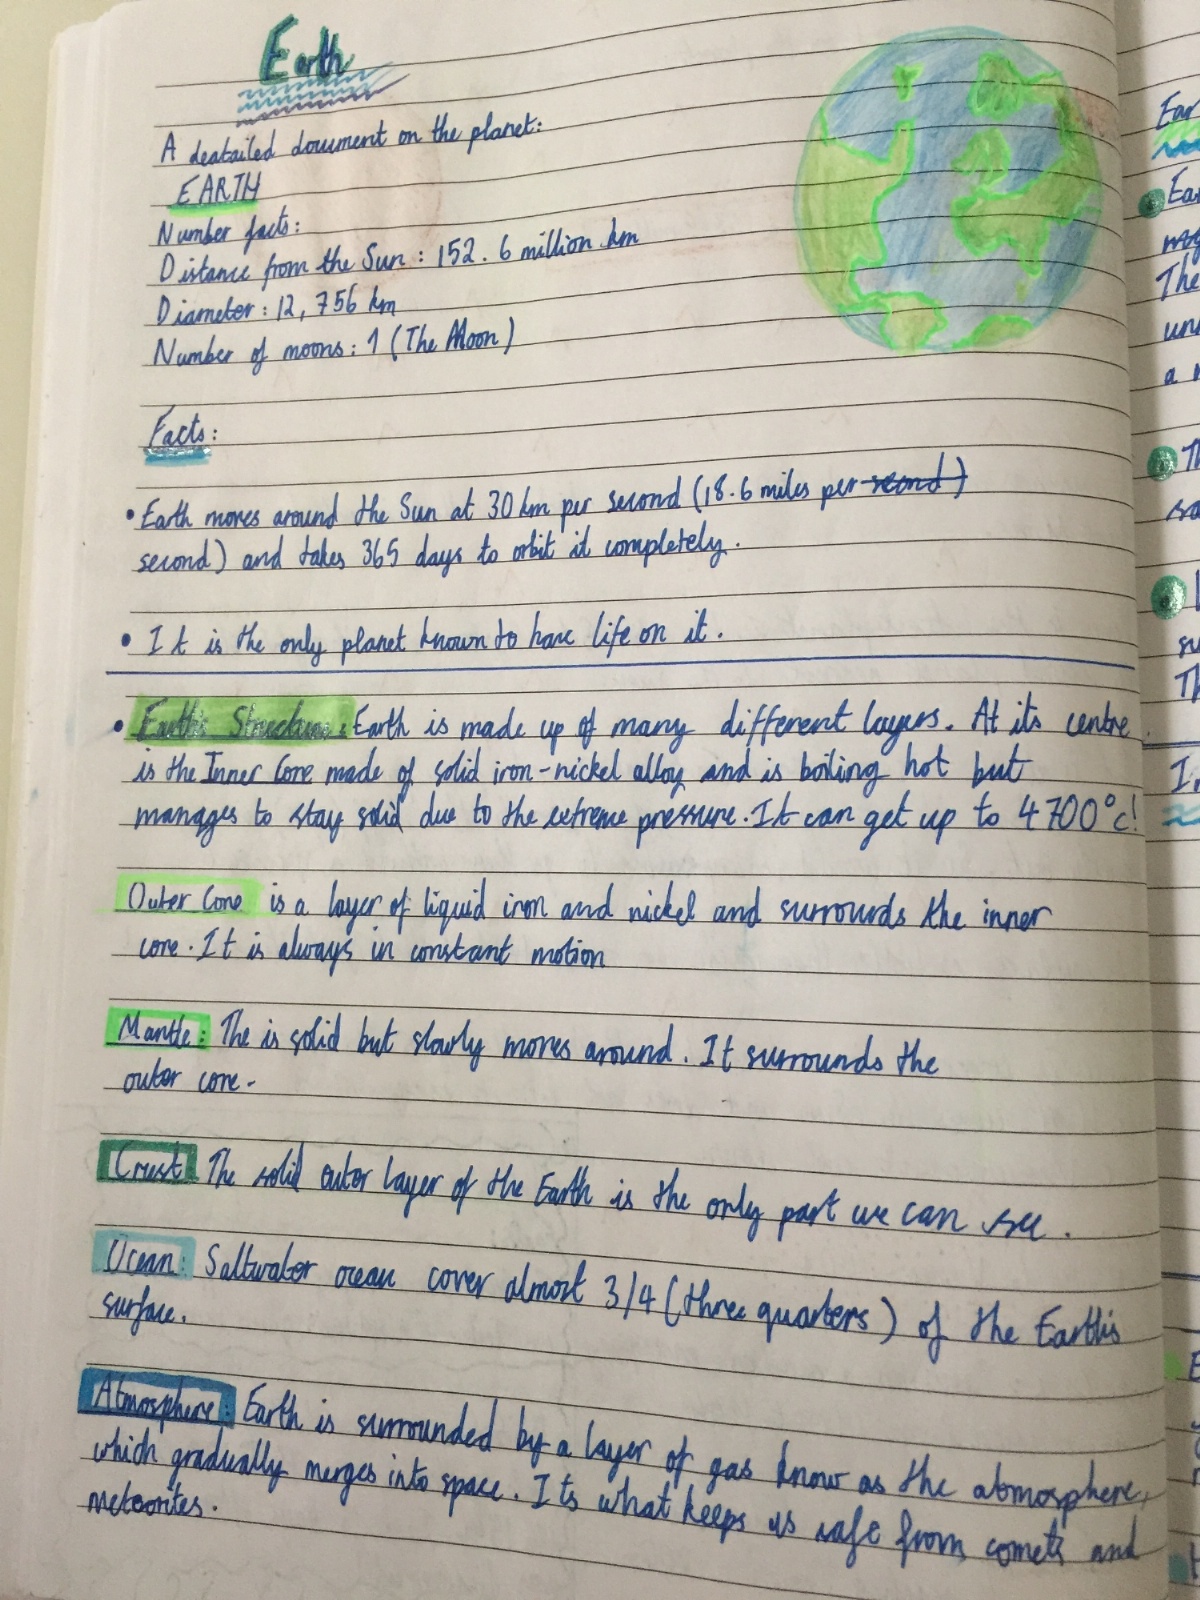 Earth
A deatailed document on the planet:
EARTH
Number facts:
Distance from the Sun : 152.6 million km
Diameter : 12,756 km
Number of moons : 1 (The Moon)
Facts:
• Earth moves around the Sun at 30 km per second (18.6 miles per second)
second) and takes 365 days to orbit it completely.
• It is the only planet known to have life on it.
• Earth's Structure: Earth is made up of many different layers. At its centre
is the Inner Core made of solid iron-nickel alloy and is boiling hot but
manages to stay solid due to the extreme pressure. It can get up to 4700°c!
Outer Core is a layer of liquid iron and nickel and surrounds the inner
core. It is always in constant motion
Mantle: The is solid but slowly moves around. It surrounds the
outer core.
Crust The solid outer layer of the Earth is the only part we can see.
Ocean: Saltwater ocean cover almost 3/4 (three quarters) of the Earth's
surface.
Atmosphere: Earth is surrounded by a layer of gas know as the atmosphere,
which gradually merges into space. Its what keeps us safe from comets and
meteorites.
Ear
Ear
The
un
a
Th
su
Th